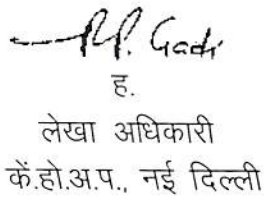 ह.
लेखा अधिकारी
कें.हो.अ.प., नई दिल्ली